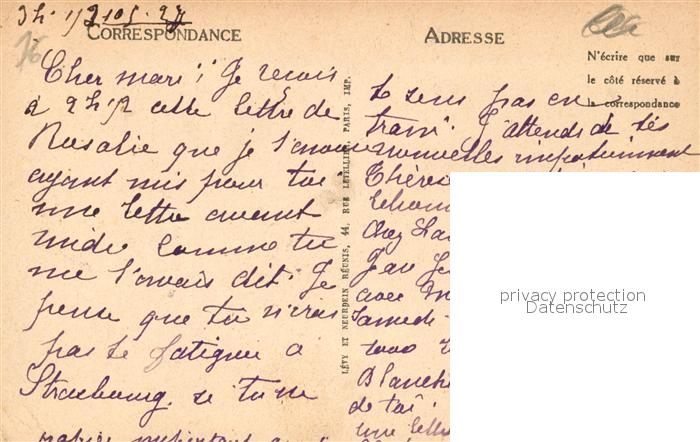 3h. 1/2 105. 27
CORRESPONDANCE
Cher mari ! Je reçois
à 2h 1/2 cette lettre de
Rosalie que je
ayant mis pour toi
une lettre avant
midi comme tu
me l'avais dit. Je
pense que tu n'iras
pas te fatiguer à
Strasbourg, si tu ne
LÉVY ET NEURDEIN RÉUNIS, 44, RUE LETELLIER, PARIS, IMP.
ADRESSE
N'écrire que sur
le côté réservé à
la correspondance
te sens pas en
train. J'attends de tes
nouvelles impatiemment
Chère
Chez
avec
Samedi
Blanche
de toi.
une lettre
privacy protection
Datenschutz